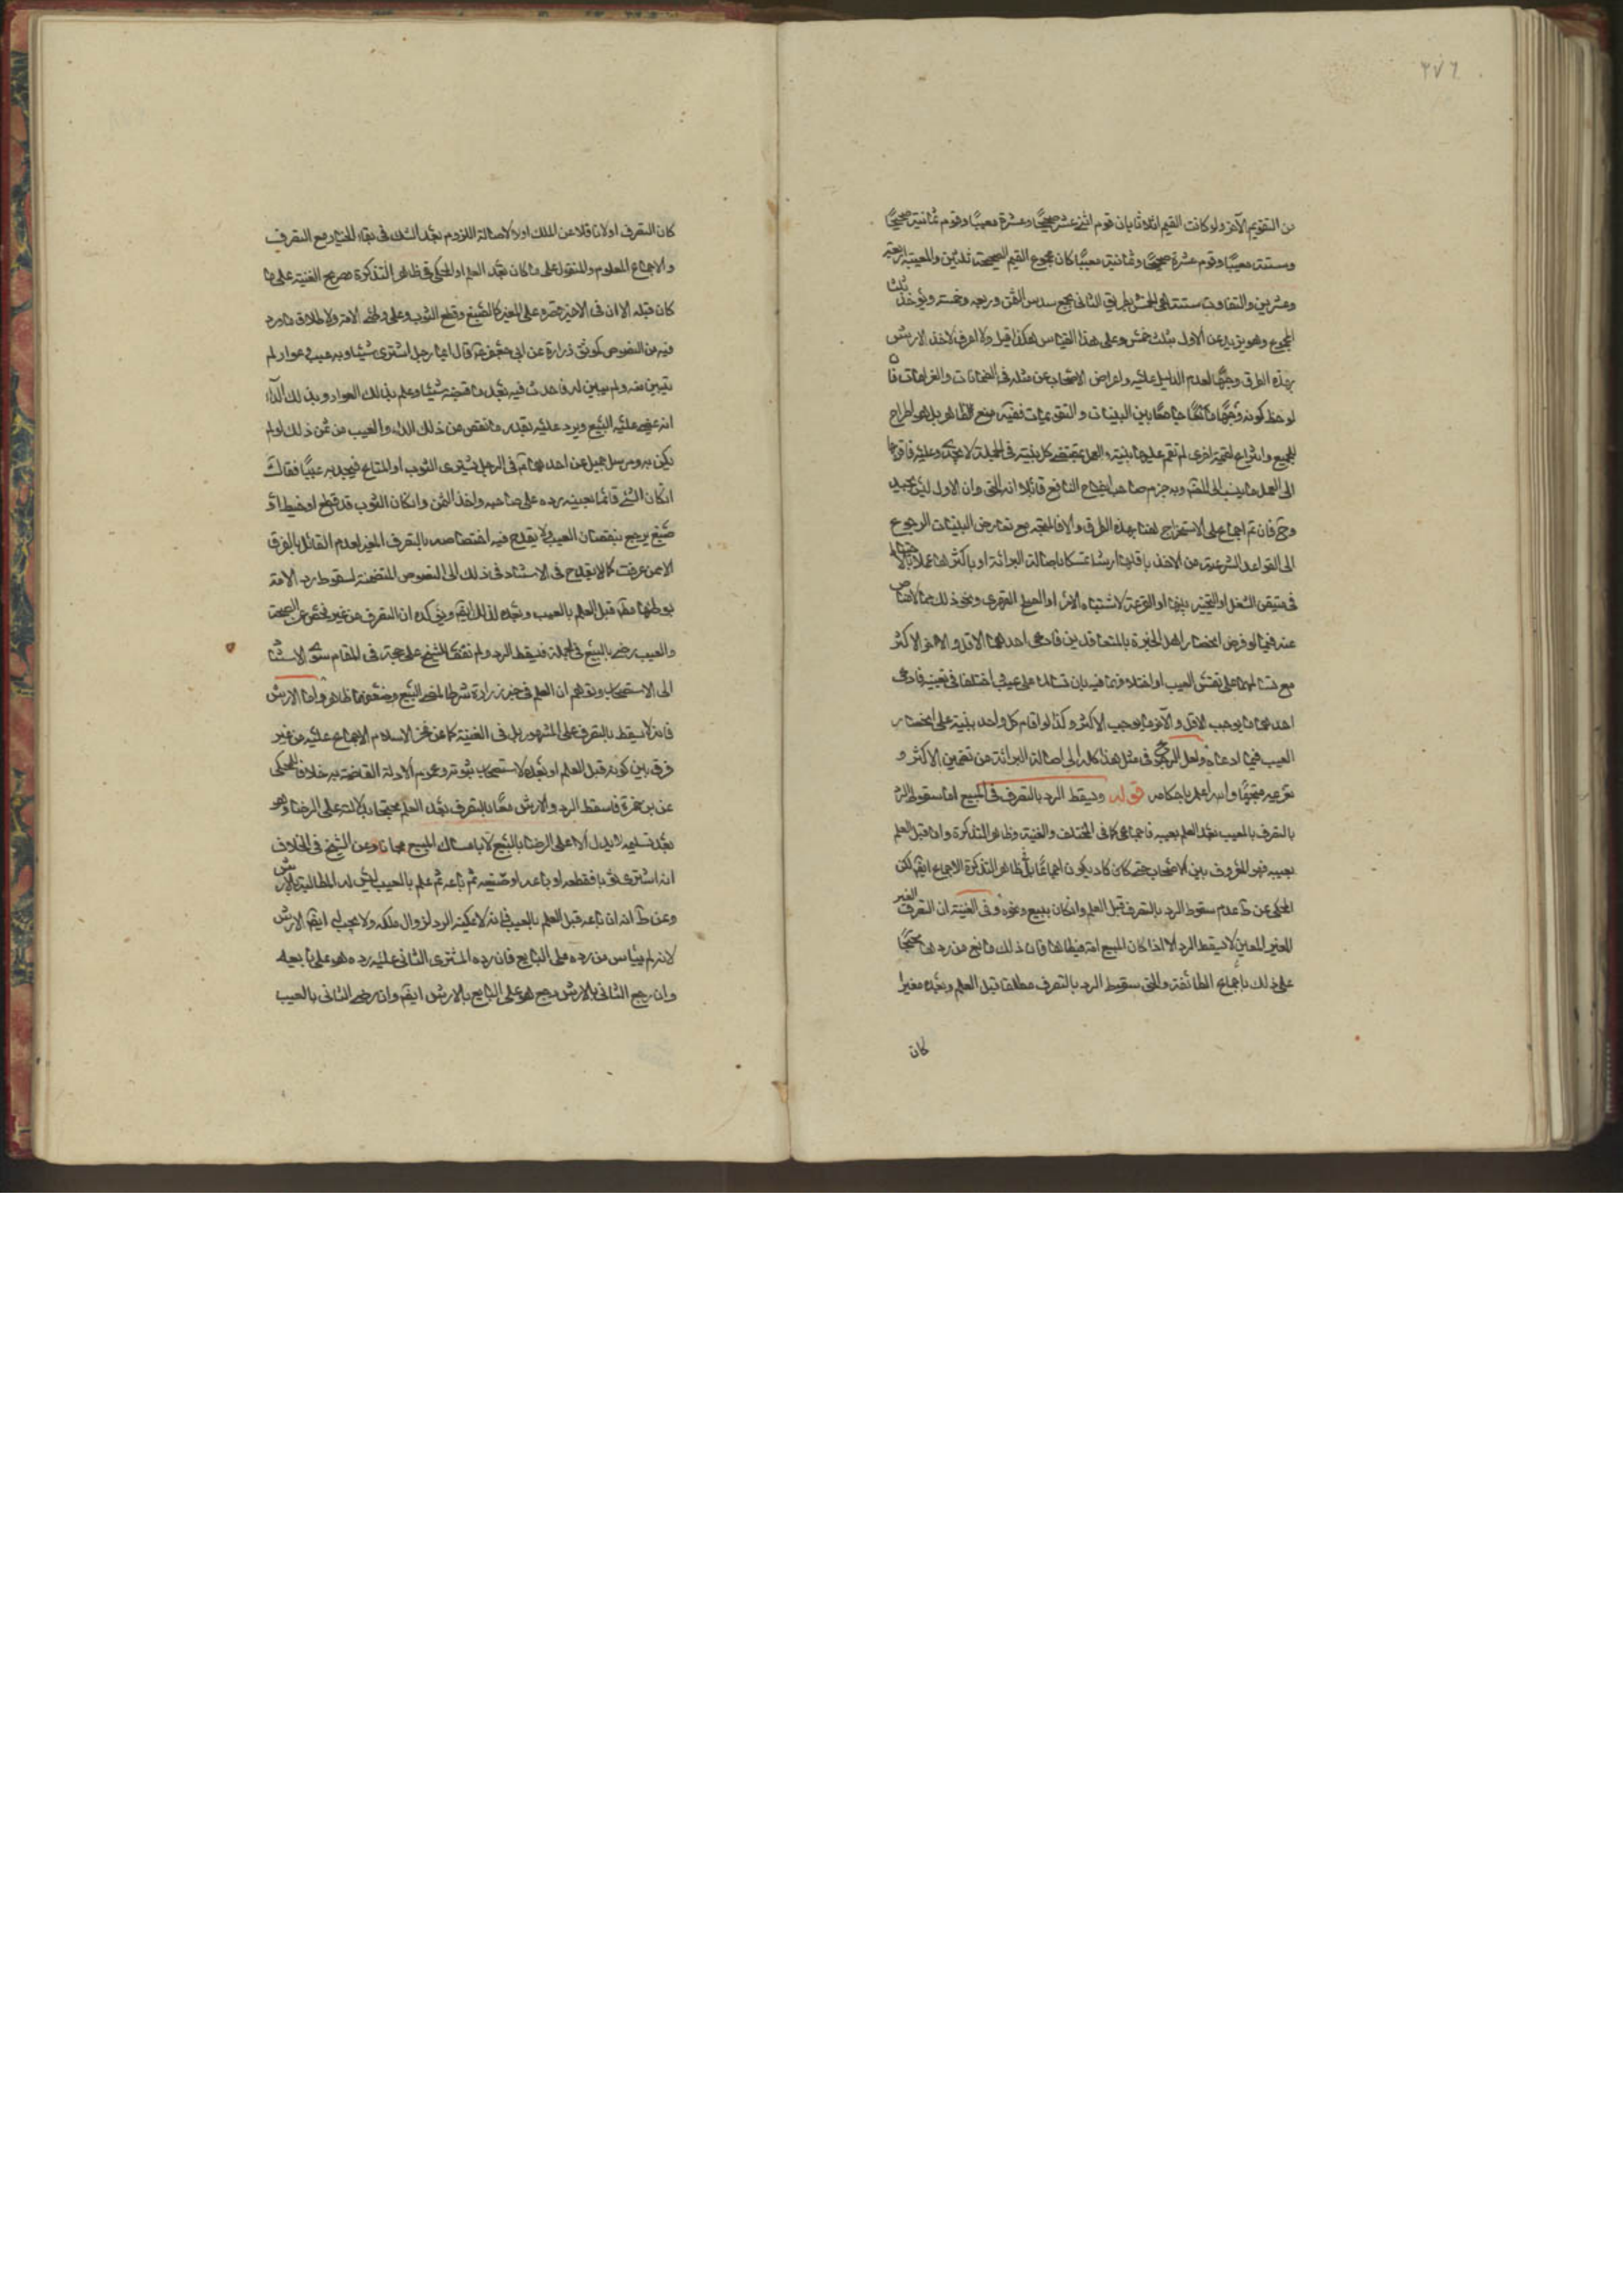 ٢٧٦
من التقويم الآخر ولو كانت القيم اثلاثا بان قوم اثنى عشر صحيحًا وعشرة معيبًا وقوم ثمانية صحيحًا
وستة معيبًا وقوم عشرة صحيحًا وثمانية معيبًا كان مجموع القيم الصحيحة ثلثين والمعيبة اربعة
وعشرين والتفاوت ستة هي الخمس وبطريق الثاني يجمع سدس الثمن وربعه وخمسه ويؤخذ ثلث
المجموع وهو يزيد عن الاول بثلث خمس وعلى هذا القياس هكذا قيل ولا اعرف لاخذ الارش
بهذه الطرق وجهًا لعدم الدليل عليه واعراض الاصحاب عن مثله في الضمانات والغرامات فان
لوحظ كونه وجهًا جامعًا بين البينات والتقويمات ففيه منع الظاهر بل هو اطراح
للجميع وانتزاع لقيمة اخرى لم تقم عليها بينة والعمل بمقتضى كل بينة في الجملة لا يجدي وعليه
الى العمل ما ينسب الى وبه جزم صاحب ايضاح النافع قائلا انه الحق وان الاول ليس بجيد
وح فان تم اجماع على الاستخراج لهنا بهذه الطرق والا فالمتجه مع تعارض البينات الرجوع
الى القواعد الشرعية من الاخذ باقلها ارشا تمسكا باصالة البرائة او باكثرها عملا بالاحتياط
في متيقن الشغل او التخيير بينها او القرعة لاشتباه الامر او الصلح القهري ونحو ذلك مما لا مناص
عنه فيما لو فرض انحصار اهل الخبرة بالمتعاقدين فادعى احدهما الاقل والاخر الاكثر
مع تسالمهما على نفس العيب او اختلاف ما فيه بان تسالما على عيب اختلفا في تعيينه فادعى
احدهما ما يوجب الاقل والآخر ما يوجب الاكثر وكذا لو اقام كل واحد بينة على انحصار
العيب فيما ادعاه ولعل الرجوع في مثل هذا كله الى اصالة البرائة من تضمين الاكثر و
متجهًا والله اعلم باحكامه قوله ويسقط الرد بالتصرف في المبيع اما سقوط الرد
بالتصرف بالمعيب بعد العلم بعيبه فاجماعي كما في المختلف والغنية وظاهر التذكرة واما قبل العلم
بعيبه فهو المعروف بين الاصحاب حتى كان كاد يكون اجماعًا بل ظاهر التذكرة الاجماع ايضا لكن
المحكي عن ط عدم سقوط الرد بالتصرف قبل العلم وان كان ببيع ونحوه وفي الغنية ان التصرف الغير
المغير للعين لا يسقط الرد الا اذا كان المبيع امة فيطاها فان ذلك مانع من ردها محتجًا
على ذلك باجماع الطائفة والحق سقوط الرد بالتصرف مطلقا قبل العلم وبعده مغيرا
كان
كان التصرف اولا ناقلا عن الملك اولا لاصالة اللزوم بعد الشك في بقاء الخيار مع التصرف
والاجماع المعلوم والمنقول على ما كان بعد العلم او المحكي في ظاهر التذكرة صريح الغنية على ما
كان قبله الا ان في الاخير قصره على المغير كالصبغ وقطع الثوب وعلى وطئ الامة ولاطلاق ما ورد
فيه من النصوص كموثق زرارة عن ابي جعفر ع قال ايما رجل اشترى شيئا وبه عيب او عوار لم
يتبين منه ولم يبين له فاحدث فيه بعد ما قبضه شيئا وعلم بذلك العوار وبذلك الداء
انه يمضى عليه البيع ويرد عليه بقدر ما ينقص من ذلك الداء والعيب من ثمن ذلك لو لم
يكن به ومرسل جميل عن احدهما ع في الرجل يشتري الثوب او المتاع فيجد به عيبًا فقال
ان كان الشئ قائما بعينه رده على صاحبه واخذ الثمن وان كان الثوب قد قطع او خيط او
صبغ يرجع بنقصان العيب ولا يقدح فيه اختصاصه بالتصرف المغير لعدم القائل بالفرق
الا ممن عرفت كما لا يقدح في الاستناد في ذلك الى النصوص المتضمنة لسقوط رد الامة
بوطئها قبل العلم بالعيب وبعده لذلك ايضا ويؤكده ان التصرف من غير فحص عن الصحة
والعيب رضى بالبيع في الجملة فيسقط الرد ولم نقف للشيخ على حجة في المقام سوى الاستناد
الى الاستصحاب وتوهم ان العلم في خبر زرارة شرطا لمضي البيع وضعفهما ظاهر واما الارش
فانه لا يسقط بالتصرف على المشهور بل في الغنية كما عن فخر الاسلام الاجماع عليه من غير
فرق بين كونه قبل العلم او بعده لاستصحاب ثبوته وعموم الادلة القاضية به خلافا للمحكي
عن بن حمزة فاسقط الرد والارش معًا بالتصرف بعد العلم محتجا بدلالته على الرضا وهو
بعد تسليمه لا يدل الا على الرضا بالبيع لا بامساك المبيع مجانا وعن الشيخ في الخلاف
انه اشترى ثوبا فقطعه او باعه او صبغه ثم باعه ثم علم بالعيب ليس له المطالبة بالارش
وعن ط انه ان باعه قبل العلم بالعيب فانه لا يمكنه الرد لزوال ملكه ولا يجب له ايضا الارش
لانه لم ييأس من رده على البايع فان رده المشتري الثاني عليه رده هو على بايعه
وان رجع الثاني بالارش رجع هو على البايع بالارش ايضا وان رضى الثاني بالعيب